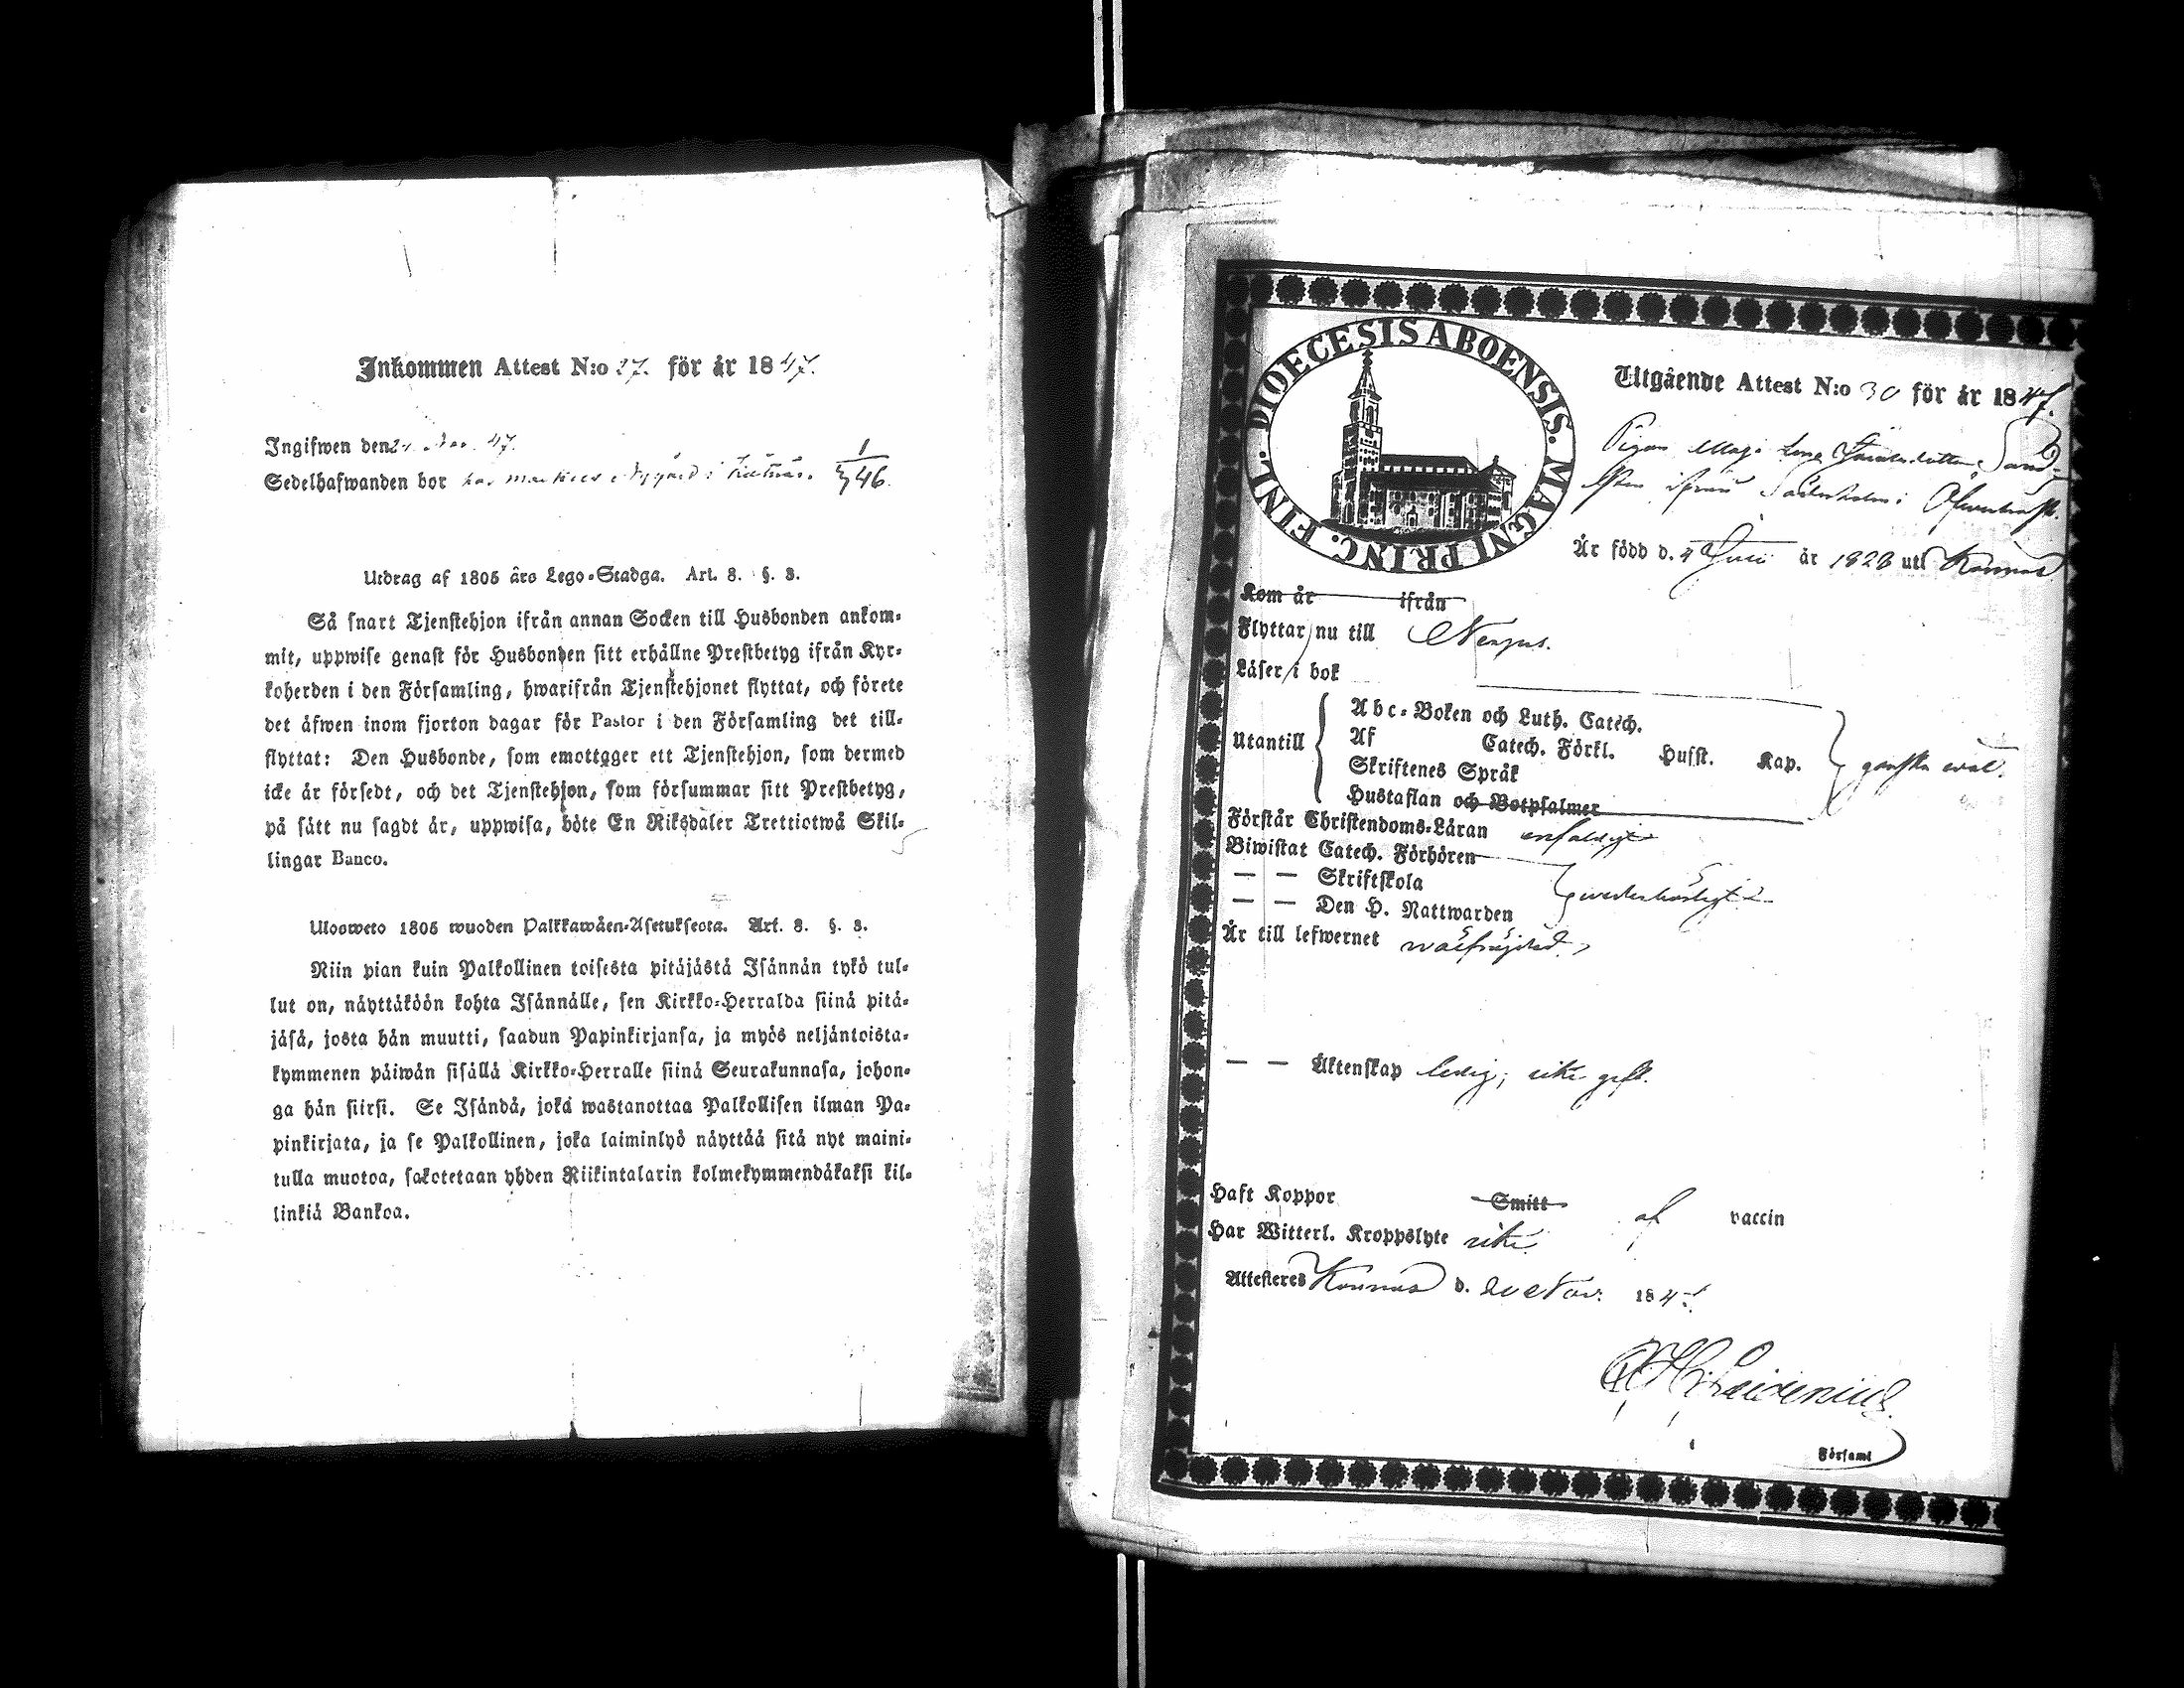 Inkommen Attest N:o 27. för år 1847.
Ingifwen den 47.
Sedelhafwanden bor hos 1/46.
Utdrag af 1805 års Lego-Stadga. Art. 8. §. 3.
Så snart Tjenstehjon ifrån annan Socken till Husbonden ankom-
mit, uppwise genast för Husbonden sitt erhållne Prestbetyg ifrån Kyr-
koherden i den Församling, hwarifrån Tjenstehjonet flyttat, och förete
det äfwen inom fjorton dagar för Pastor i den Församling det till-
flyttat: Den Husbonde, som emottager ett Tjenstehjon, som dermed
icke är försedt, och det Tjenstehjon, som försummar sitt Prestbetyg,
på sätt nu sagdt är, uppwisa, böte En Riksdaler Trettiotwå Skil-
lingar Banco.
Ulosweto 1805 wuoden Palkkawäen-Asetuksesta. Art. 8. §. 3.
Niin pian kuin Palkollinen toisesta pitäjästä Isännän tykö tul-
lut on, näyttäköön kohta Isännälle, sen Kirkko-Herralda siinä pitä-
jäsä, josta hän muutti, saadun Papinkirjansa, ja myös neljäntoista-
kymmenen päiwän sisällä Kirkko-Herralle siinä Seurakunnasa, johon-
ga hän siirsi. Se Isändä, joka wastanottaa Palkollisen ilman Pa-
pinkirjata, ja se Palkollinen, joka laiminlyö näyttää sitä nyt maini-
tulla muotoa, sakotetaan yhden Riikintalarin kolmekymmendäkaksi kil-
linkiä Bankoa.
DIOECESIS ABOENSIS. MAGNI PRINC. FINL.
Utgående Attest N:o 30 för år 1847.
Pigan Maja Lena
ifrån
Är född d. 4 Juni år 1828 uti Korpnäs
Kom år ifrån
Flyttar nu till
Läser i bok
Utantill
Abc-Boken och Luth. Catech.
Af Catech. Förkl. Husst. Kap.
Skriftenes Språk
Hustaflan och Botpsalmer
ganska wäl.
Förstår Christendoms-Läran enfaldigt
Biwistat Catech. Förhören
— — Skriftskola
— — Den H. Nattwarden
wederbörligt
Är till lefwernet wälfrejdad.
— — Äktenskap ledig; icke gift.
Haft Koppor Smitt af vaccin
Har Witterl. Kroppslyte icke
Attesteres d. 20 Nov. 1847.
Församl